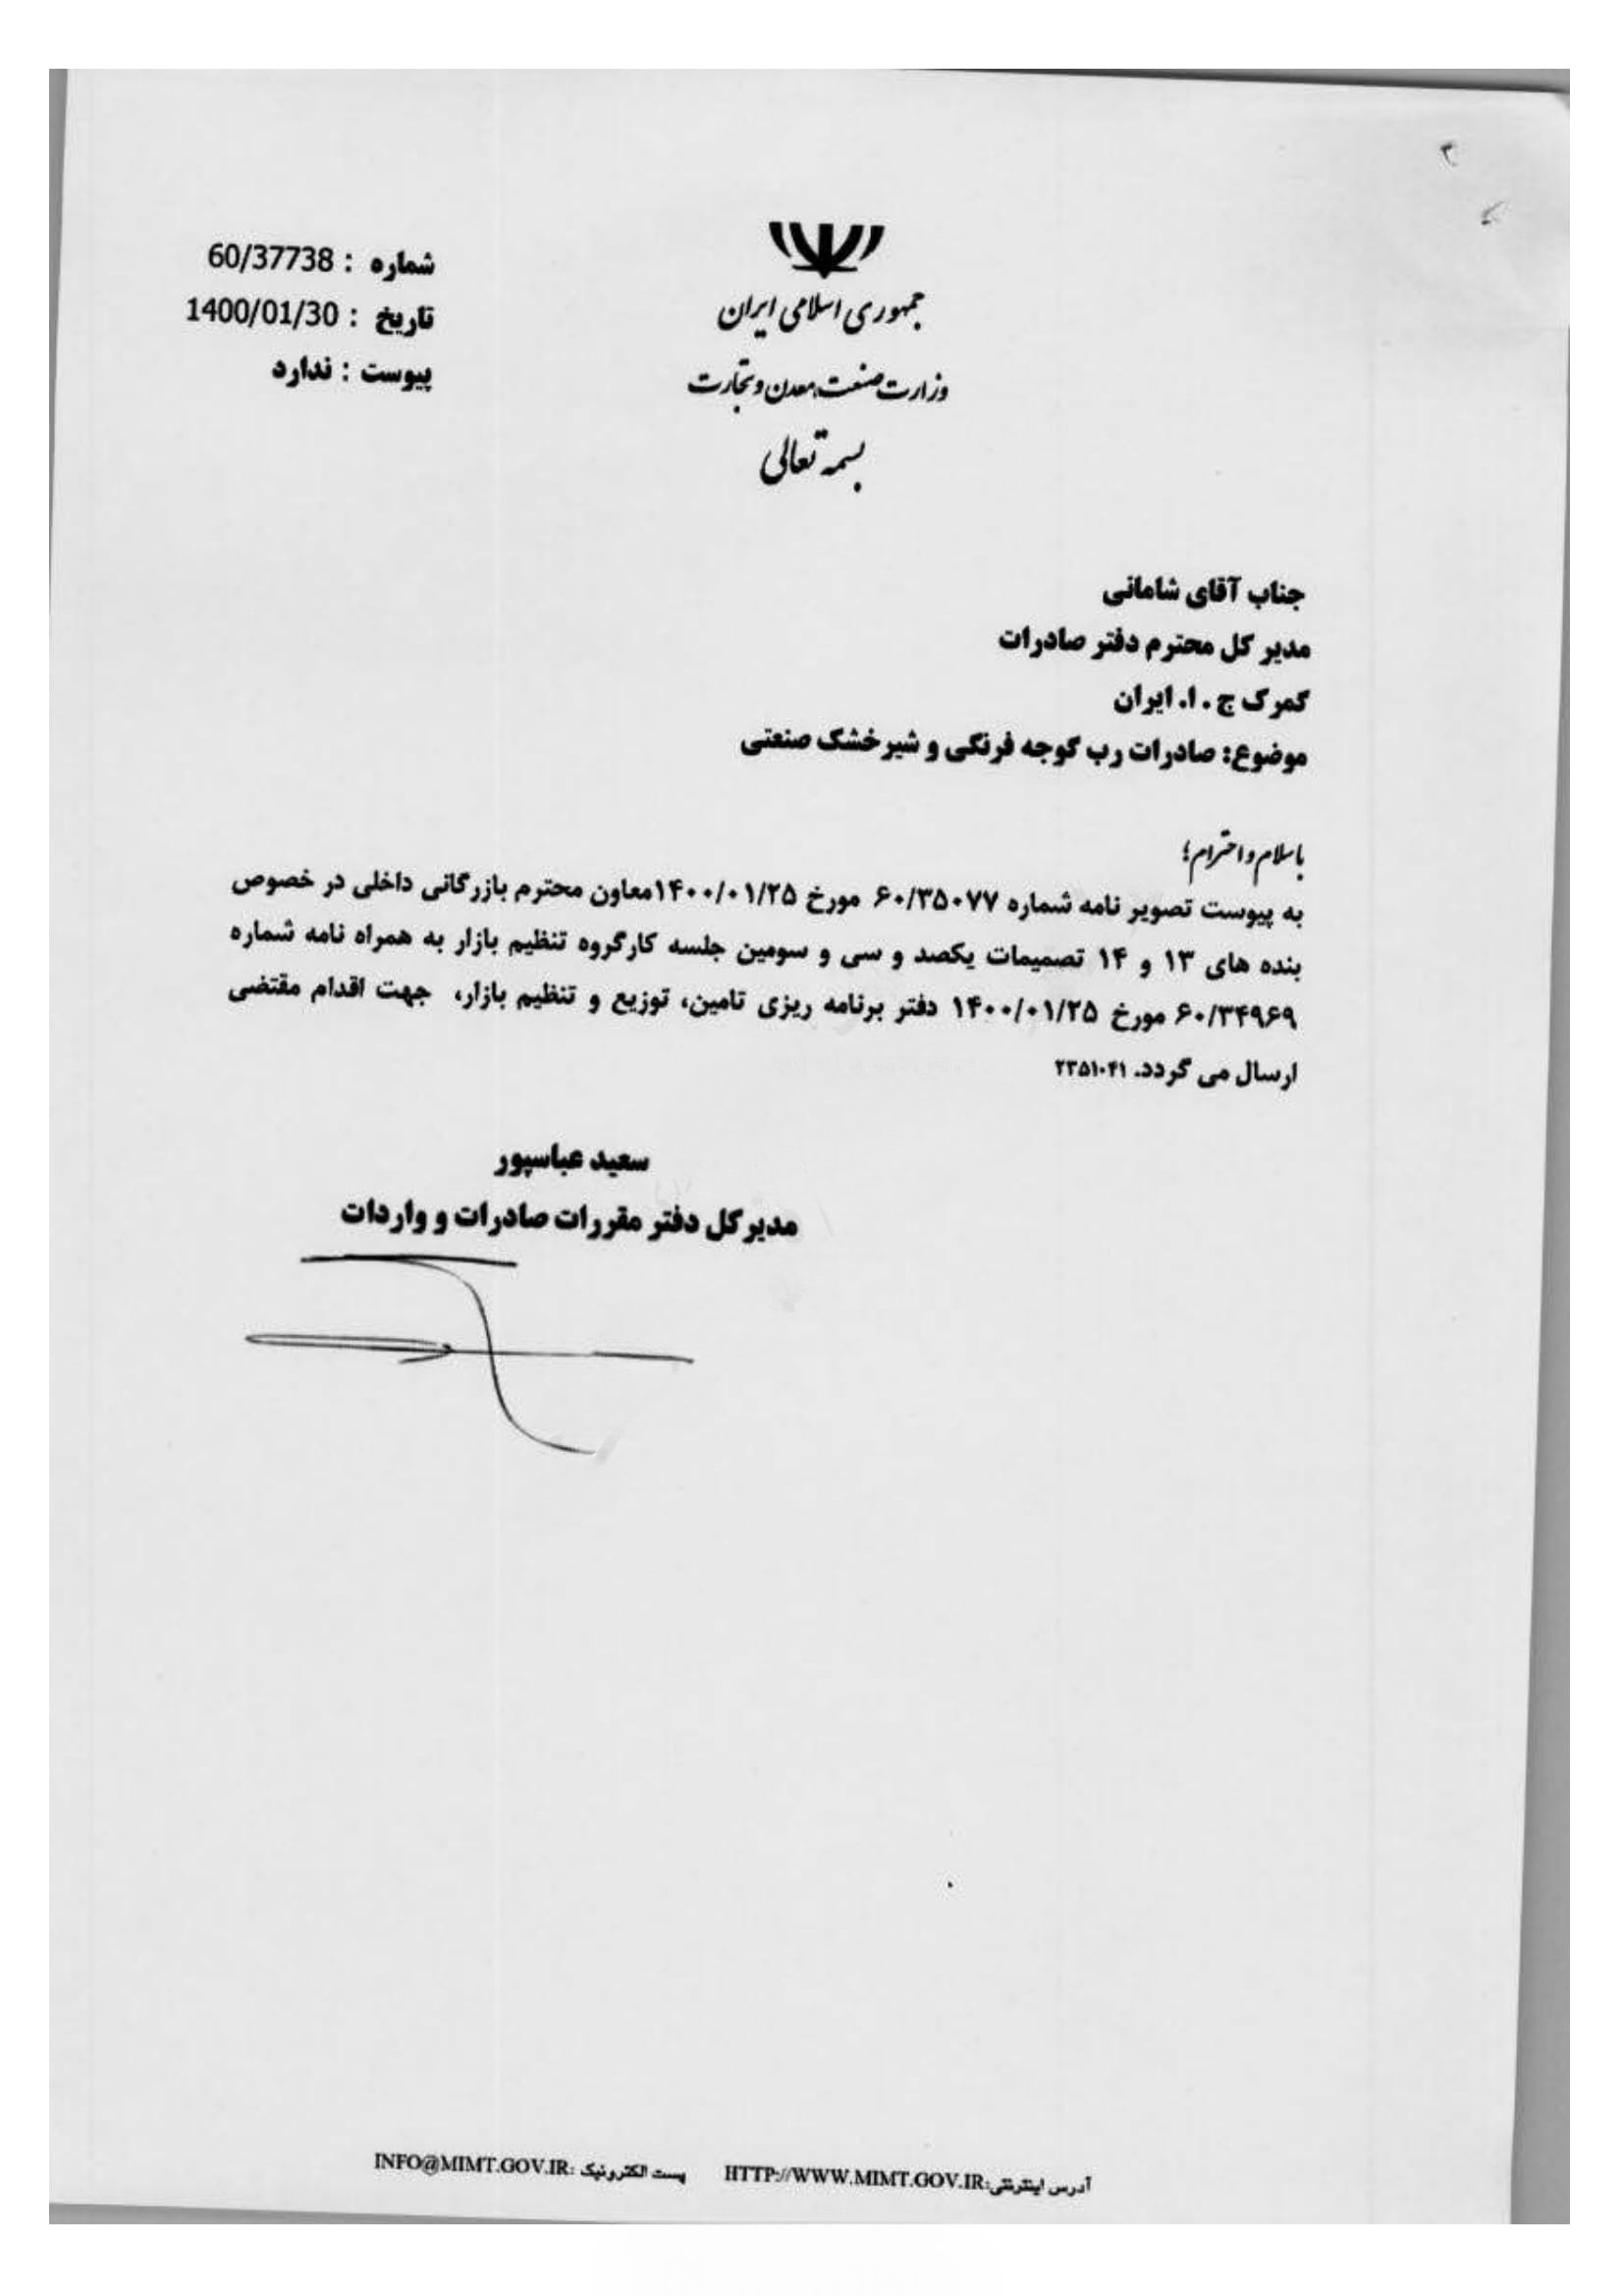 جمهوری اسلامی ایران
وزارت صنعت، معدن و تجارت
بسمه تعالی
شماره : 60/37738
تاریخ : 1400/01/30
پیوست : ندارد
جناب آقای شامانی
مدیر کل محترم دفتر صادرات
گمرک ج . ا. ایران
موضوع: صادرات رب گوجه فرنگی و شیرخشک صنعتی
باسلام و احترام؛
به پیوست تصویر نامه شماره ۶۰/۳۵۰۷۷ مورخ ۱۴۰۰/۰۱/۲۵معاون محترم بازرگانی داخلی در خصوص
بنده های ۱۳ و ۱۴ تصمیمات یکصد و سی و سومین جلسه کارگروه تنظیم بازار به همراه نامه شماره
۶۰/۳۴۹۶۹ مورخ ۱۴۰۰/۰۱/۲۵ دفتر برنامه ریزی تامین، توزیع و تنظیم بازار، جهت اقدام مقتضی
ارسال می گردد. ۲۳۵۱۰۴۱
سعید عباسپور
مدیرکل دفتر مقررات صادرات و واردات
آدرس اینترنتی:HTTP://WWW.MIMT.GOV.IR پست الکترونیک :INFO@MIMT.GOV.IR